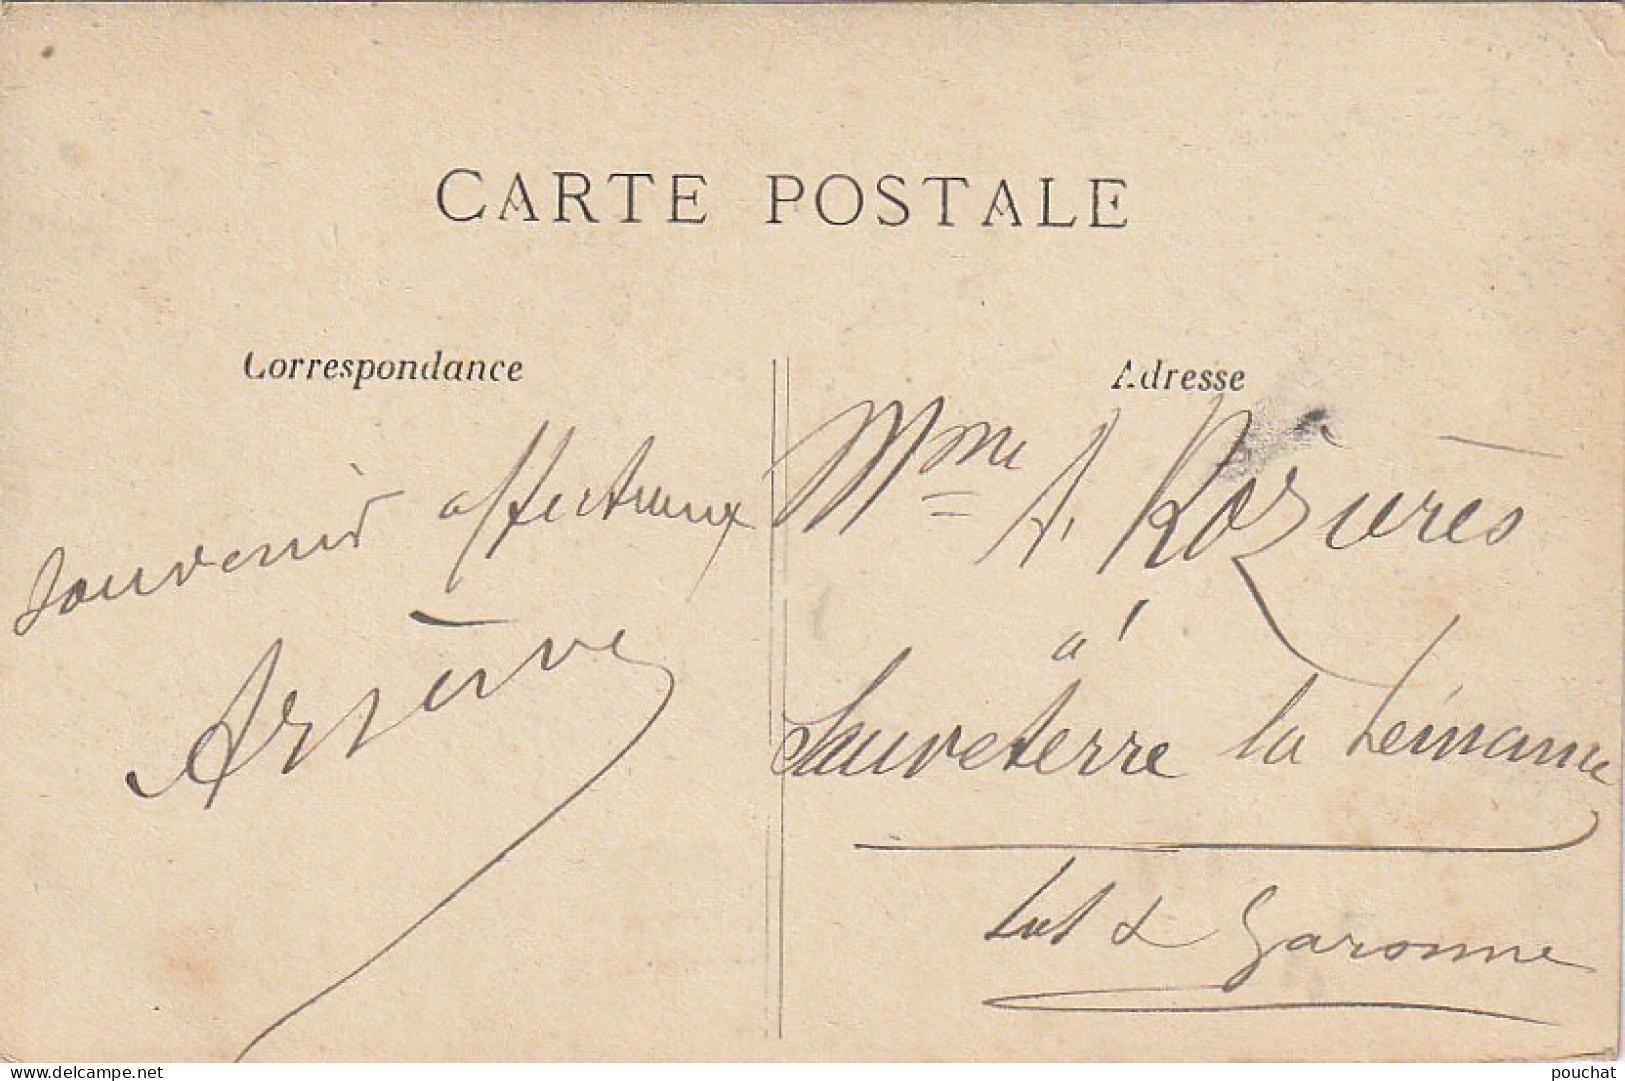 CARTE POSTALE
Correspondance
Adresse
souvenir affectueux
Arsène
Mme A. Rozières
à
Sauveterre la Lémance
Lot & Garonne
delcampe.net
pouchat